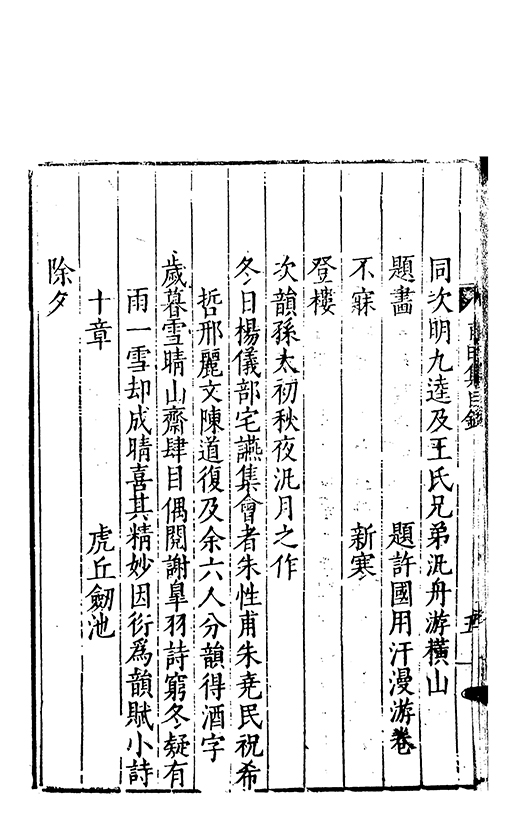 甫田集目錄
五
同次明九逵及王氏兄弟汎舟游橫山
題畵　題許國用汗漫游卷
不寐　新寒
登樓
次韻孫太初秋夜汎月之作
冬日楊儀部宅讌集會者朱性甫朱堯民祝希
哲邢麗文陳道復及余六人分韻得酒字
歲暮雪晴山齋肆目偶閱謝皐羽詩窮冬疑有
雨一雪却成晴喜其精妙因衍爲韻賦小詩
十章　虎丘劒池
除夕